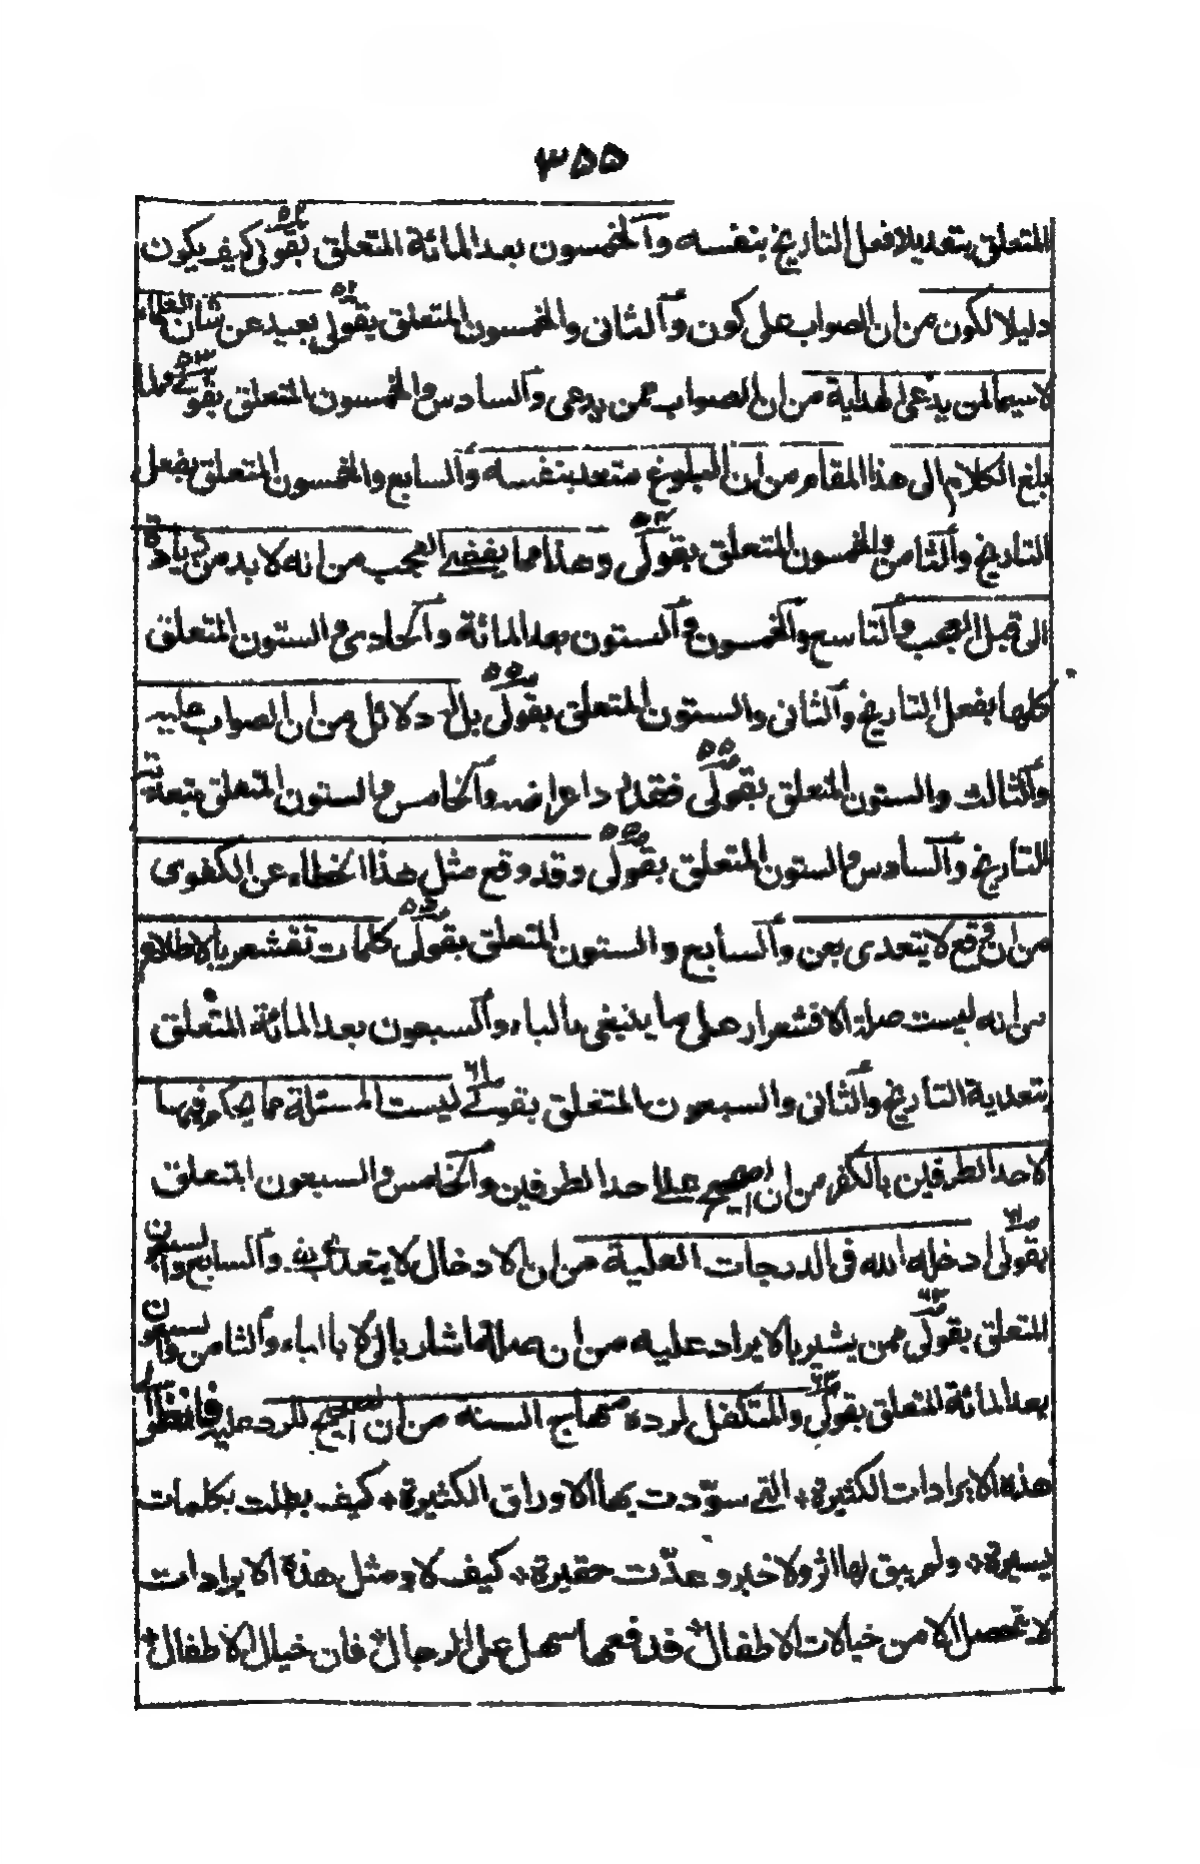 ٣٥٥
المتعلق بتعديلا فعل التاريخ بنفسه والخمسون بعد المائة المتعلق بقولى كيف يكون
دليلا لكون من ان الصواب على كون والثانى والخمسون المتعلق بقولى بعيد عن شان العلماء
لاسيما لمن يدعى الهداية من ان الصواب ممن يدعى والسادس والخمسون المتعلق بقولى ولما
بلغ الكلام الى هذا المقام من ان البلوغ متعد بنفسه والسابع والخمسون المتعلق بفعل
التاريخ والثامن والخمسون المتعلق بقولى وهذا مما يفضے العجب من انه لابد من زيادة
الى قبل العجب والتاسع والخمسون والستون بعد المائة والحادى والستون المتعلق
كلها بفعل التاريخ والثانى والستون المتعلق بقولى بل الدلائل من ان الصواب عليه
والثالث والستون المتعلق بقولى فقد اعراضه والخامس والستون المتعلق بتعدية
التاريخ والسادس والستون المتعلق بقولى وقد وقع مثل هذا الخطاء عن الكفوى
من ان وقع لا يتعدى بعن والسابع والستون المتعلق بقولى كلمات تقشعر بالاطلاع
من انه ليست صلة الاقشعرار على ما ينبغى بالباء والسبعون بعد المائة المتعلق
بتعدية التاريخ والثانى والسبعون المتعلق بقولے ليست المسئلة مما يحكم فيها
لاحد الطرفين بالكفر من ان الصحيح على احد الطرفين والخامس والسبعون المتعلق
بقولى ادخله الله فى الدرجات العلية من ان الادخال لا يتعدى بفى والسابع والسبعون
المتعلق بقولى ممن يشير بالايراد عليه من ان صلة اشار بالى لا بالباء والثامن والسبعون
بعد المائة المتعلق بقولى والمتكفل لرده منهاج السنه من ان الصحيح للرد عليه فانظر الى
هذه الايرادات الكثيرة + التے سوّدت بها الاوراق الكثيرة + كيف بطلت بكلمات
يسيرة + ولم يبق لها اثر ولا خبر وعدّت حقيرة + كيف لا ومثل هذه الايرادات
لا تحصل الا من خيالات الاطفال + فدفعها سهل على الرجال + فان خيال الاطفال +